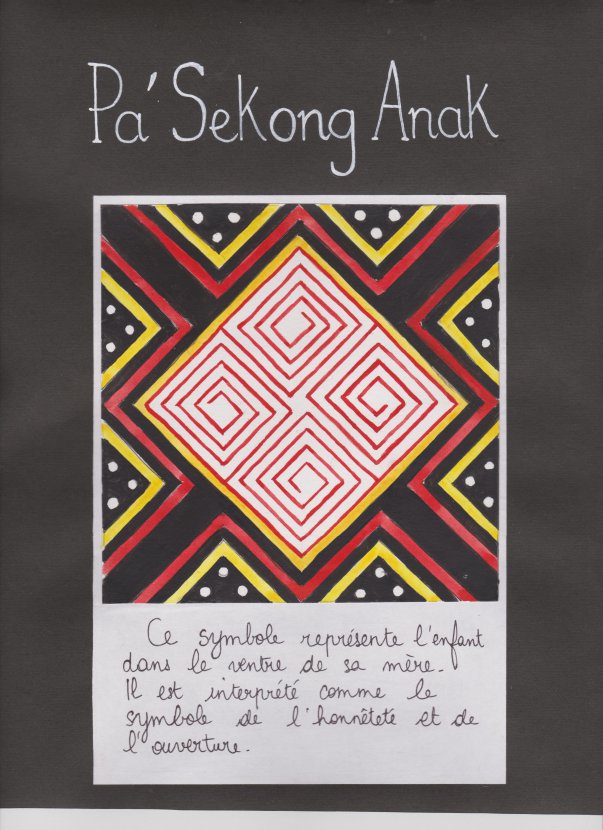 Pa' Sekong Anak
Ce symbole représente l'enfant
dans le ventre de sa mère.
Il est interprété comme le
symbole de l'honnêteté et de
l'ouverture.